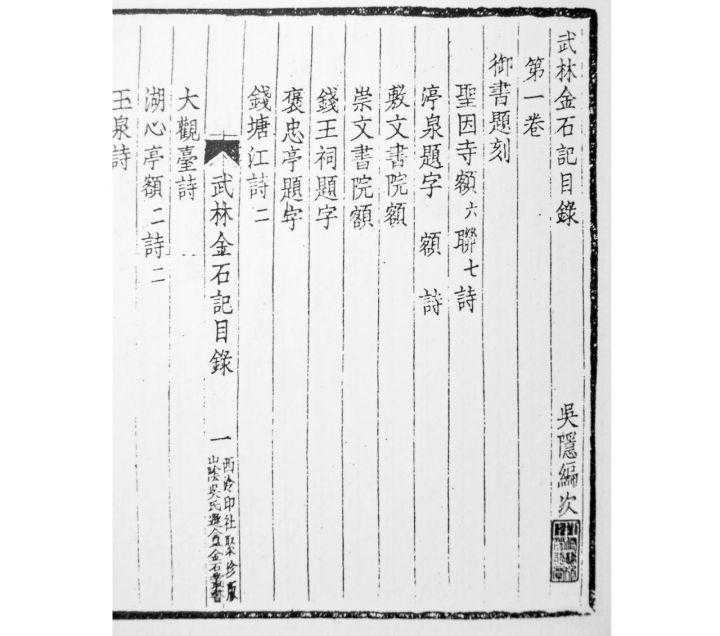 武林金石記目錄 吳隱編次
第一卷
御書題刻
聖因寺額六聯七詩
渟泉題字 額 詩
敷文書院額
崇文書院額
錢王祠題字
褒忠亭題字
錢塘江詩二
武林金石記目錄 一
西泠印社聚珍
山陰吳氏遯盦金石叢書
大觀臺詩
湖心亭額二詩二
玉泉詩